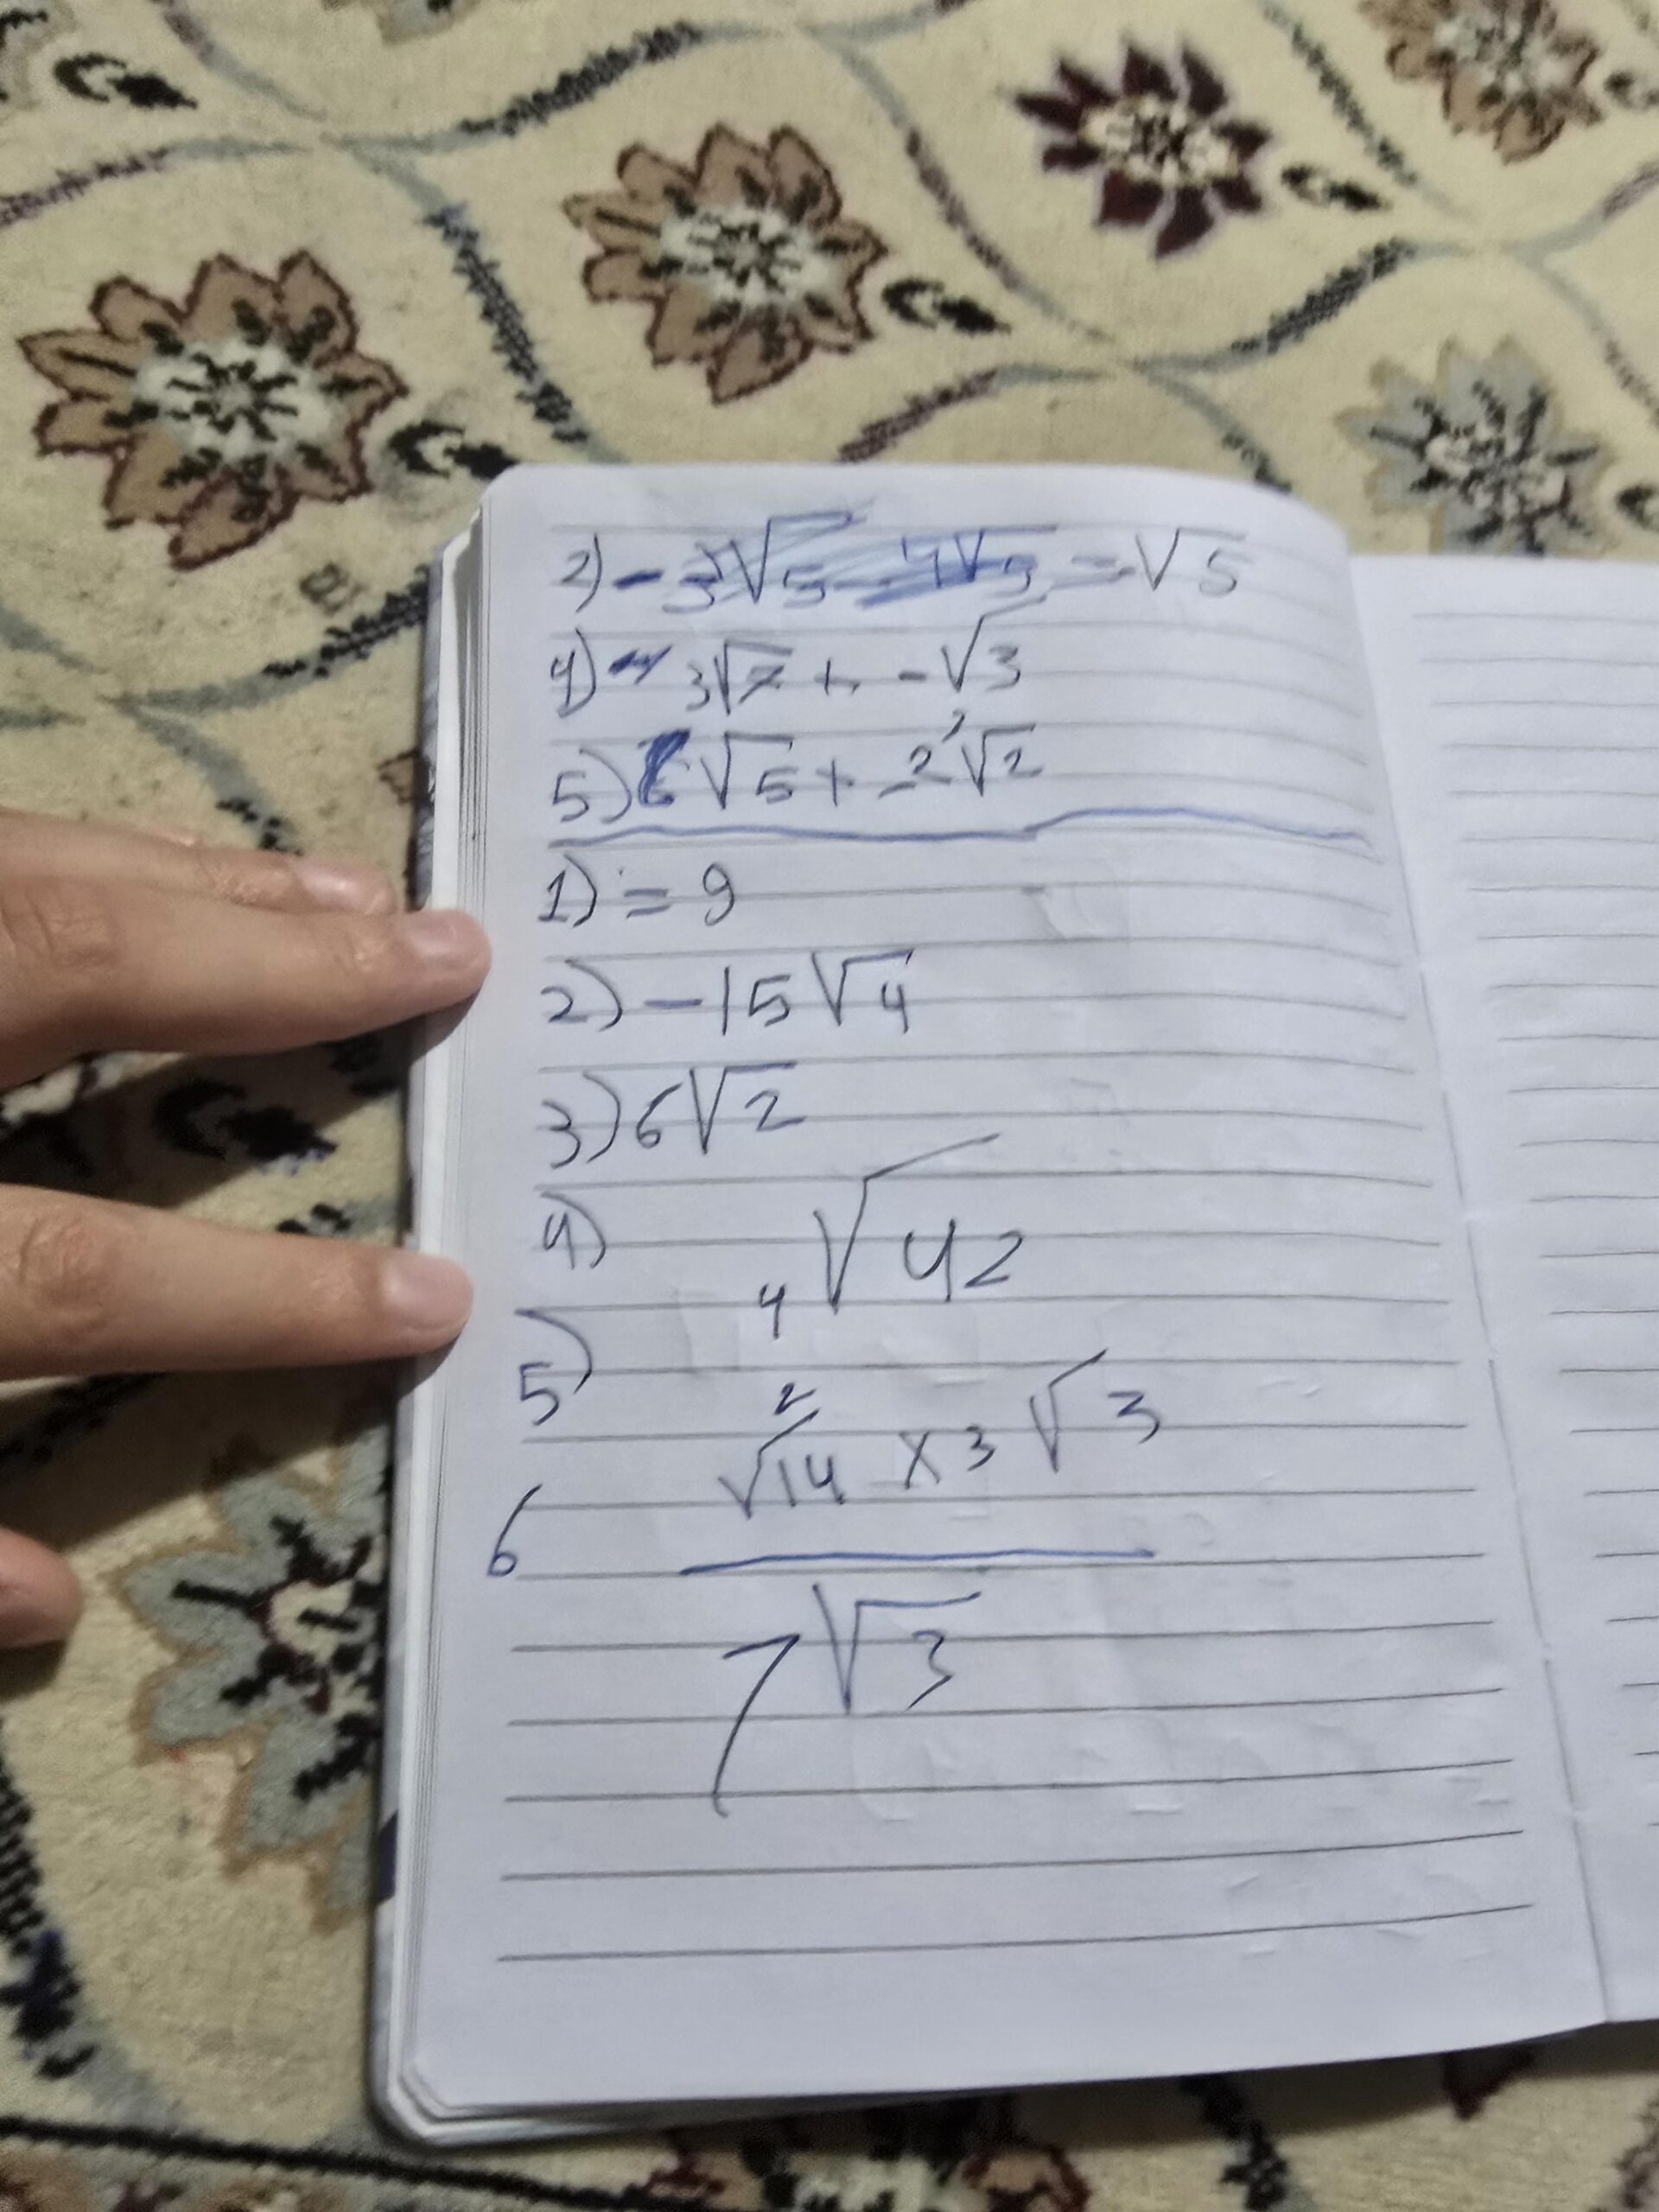 2) - 3√5 - 4√5 = -√5
4) 3√7 + -√3
5) 6√5 + -2√2
1) = 9
2) -15√4
3) 6√2
4) 4√42
5)
2
√14 × 3√3
6
7√3